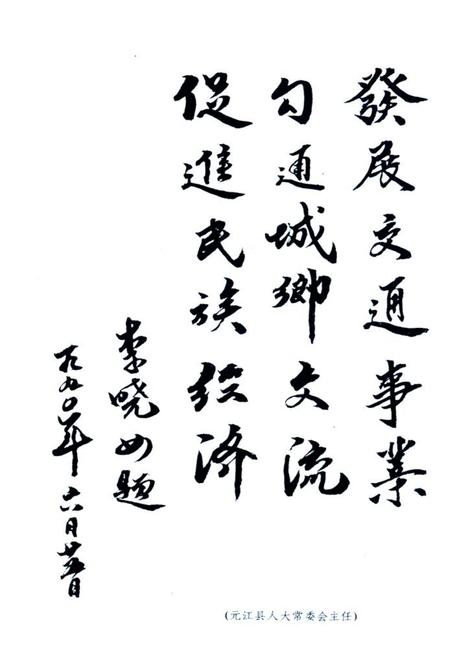 發展交通事業
勾通城鄉交流
促進民族经济
李晓如题
一九九〇年六月廿五日
(元江县人大常委会主任)